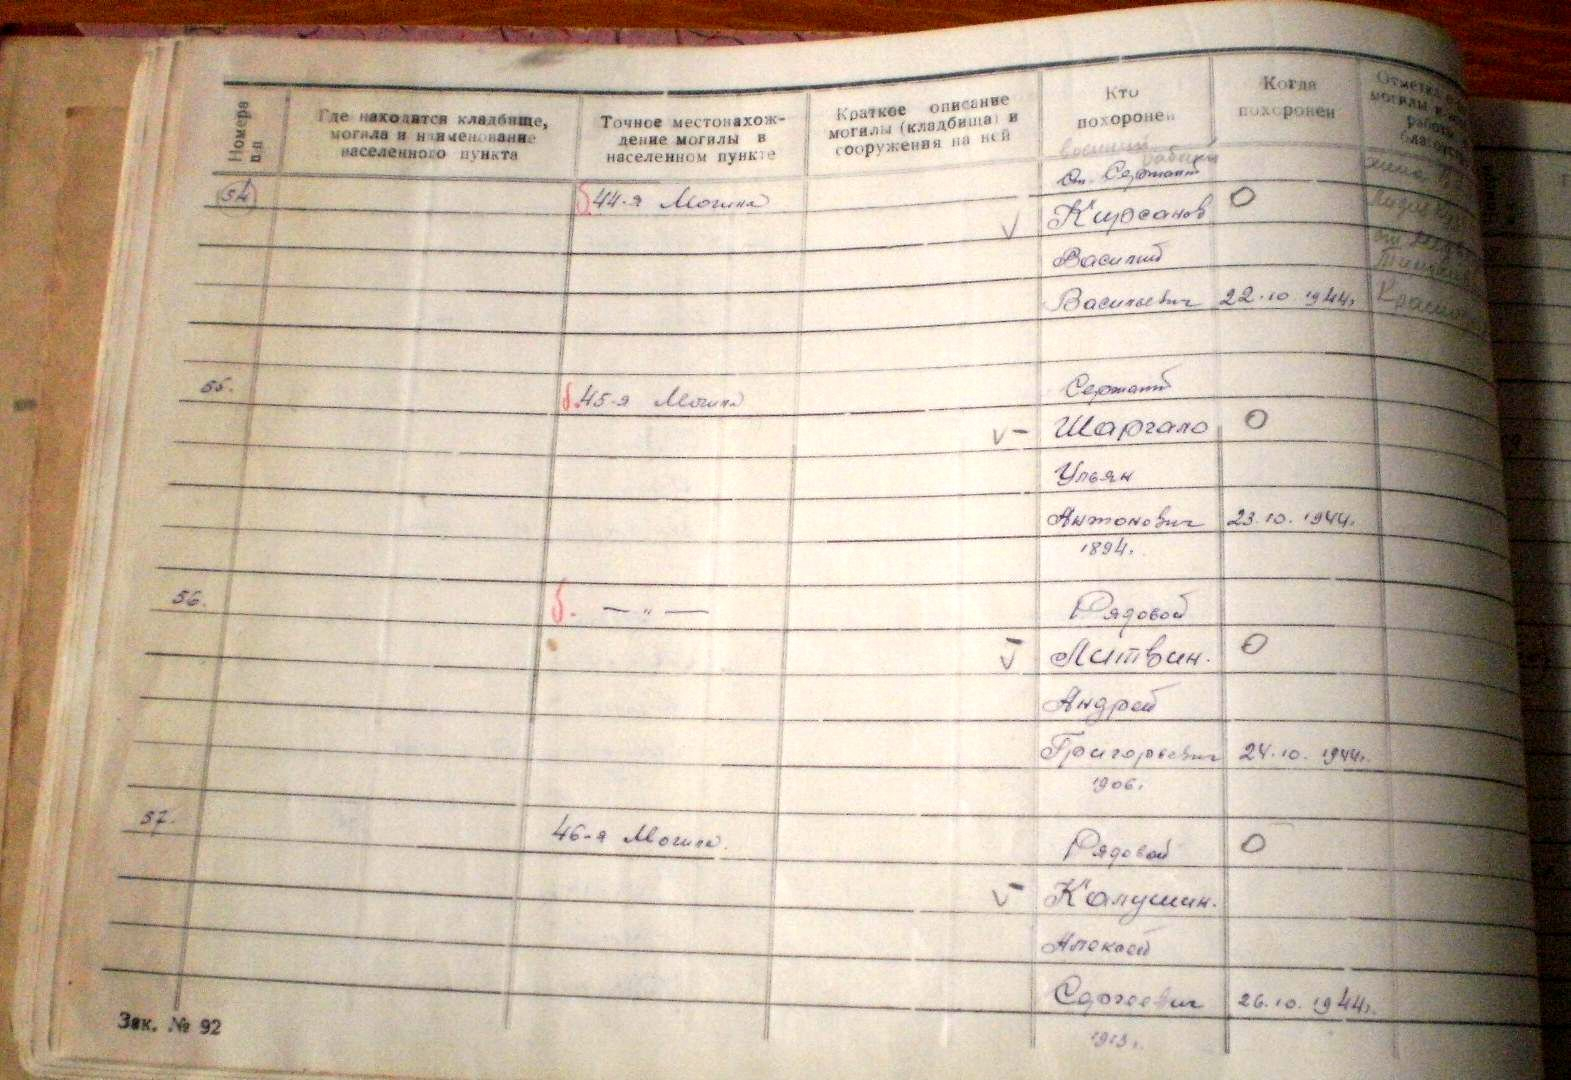 Номера п.п
Где находится кладбище,
могила и наименование
населенного пункта
Точное местонахож-
дение могилы в
населенном пункте
Краткое описание
могилы (кладбища) и
сооружения на ней
Кто
похоронен
Когда
похоронен
54
б 44-я Могила
Ст. Сержант
V Кирсанов О
Василий
Васильевич 22.10 1944г.
55.
б. 45-я Могила
Сержант
V - Шаргало О
Ульян
Антонович 23.10. 1944г.
1894г.
56.
б. — „ —
Рядовой
V - Литвин. О
Андрей
Григорьевич 24.10. 1944г.
1906г.
57.
46-я Могила.
Рядовой О
V - Калушин.
Алексей
Сергеевич 26.10.1944г.
1913г.
Зак. № 92